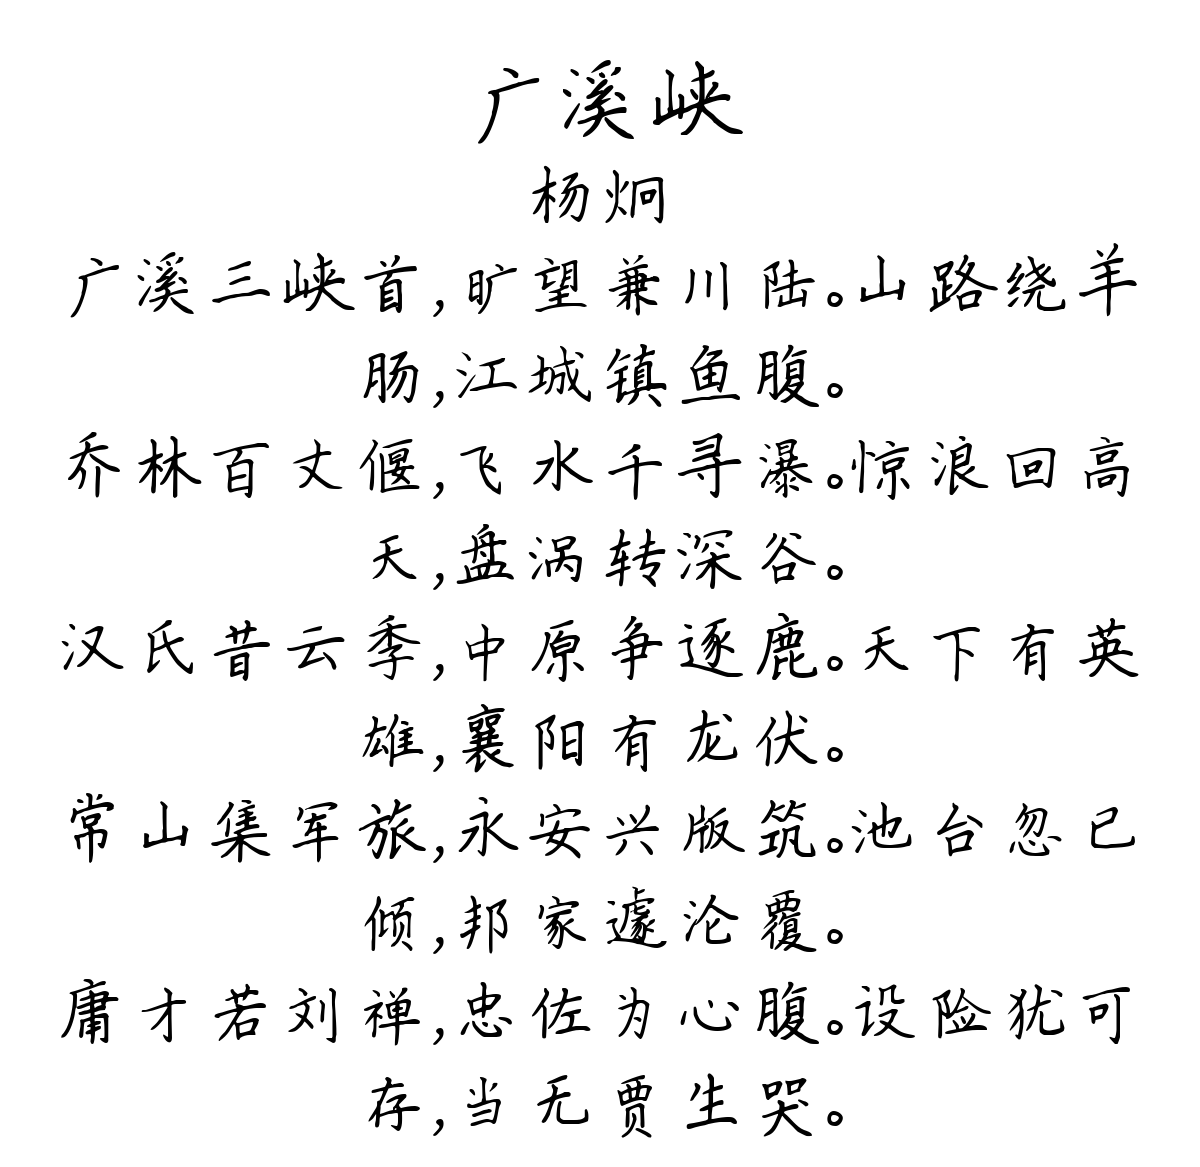 广溪峡
杨炯
广溪三峡首,旷望兼川陆。山路绕羊
肠,江城镇鱼腹。
乔林百丈偃,飞水千寻瀑。惊浪回高
天,盘涡转深谷。
汉氏昔云季,中原争逐鹿。天下有英
雄,襄阳有龙伏。
常山集军旅,永安兴版筑。池台忽已
倾,邦家遽沦覆。
庸才若刘禅,忠佐为心腹。设险犹可
存,当无贾生哭。